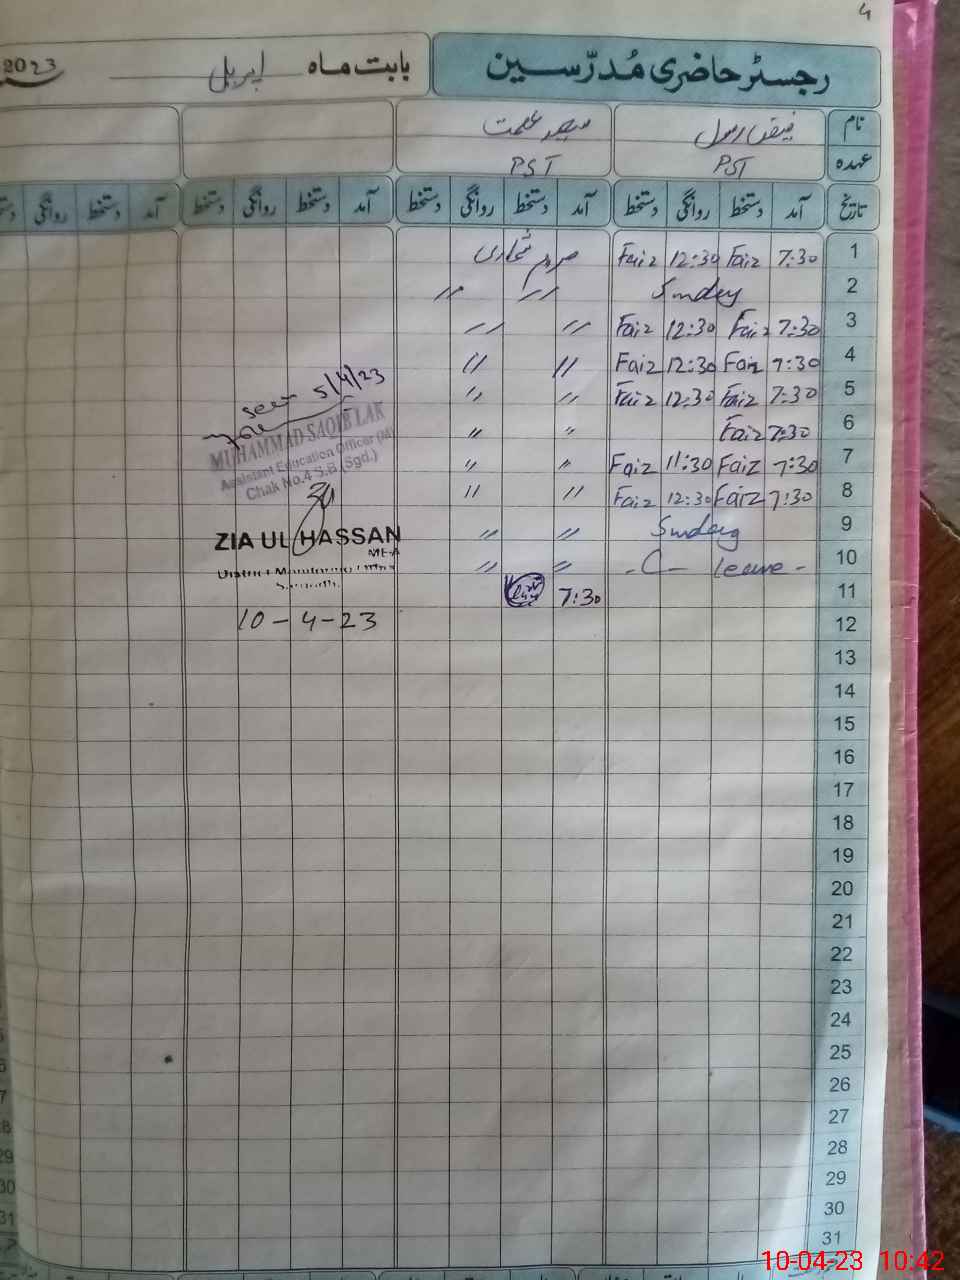 4
رجسٹر حاضری مُدرّسین
بابت ماہ اپریل 2023
نام فیض رسول
عہدہ PST PST
تاریخ آمد دستخط روانگی دستخط آمد دستخط روانگی دستخط آمد دستخط روانگی دستخط آمد دستخط روانگی
1 7:30 Faiz 12:30 Faiz
2 Sunday " "
3 7:30 Faiz 12:30 Faiz " "
4 7:30 Faiz 12:30 Faiz " "
5 7:30 Faiz 12:30 Faiz " "
6 7:30 Faiz " "
7 7:30 Faiz 11:30 Faiz " "
8 7:30 Faiz 12:30 Faiz " "
9 Sunday " "
10 - C - leave - " "
11 7:30
12
13
14
15
16
17
18
19
20
21
22
23
24
25
26
27
28
29
30
31
seen 5/4/23
MUHAMMAD SAQIB LAK
Assistant Education Officer (M)
Chak No.4 S.B (Sgd.)
ZIA UL HASSAN
MEA
10-4-23
29
30
31
10-04-23 10:42